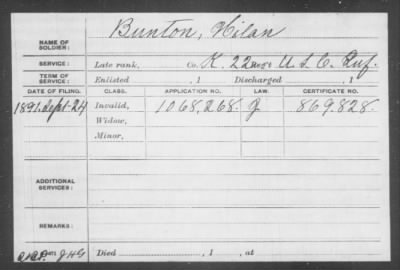 NAME OF SOLDIER: Bunton, Hilan
SERVICE: Late rank, Co. K. 22 Reg't U S C Inf.
TERM OF SERVICE: Enlisted , 1 Discharged , 1
DATE OF FILING. CLASS. APPLICATION NO. LAW. CERTIFICATE NO.
1891. Sept. 24 Invalid, 1068,268. J 869.828.
Widow,
Minor,
ADDITIONAL SERVICES:
REMARKS:
Died , 1 , at